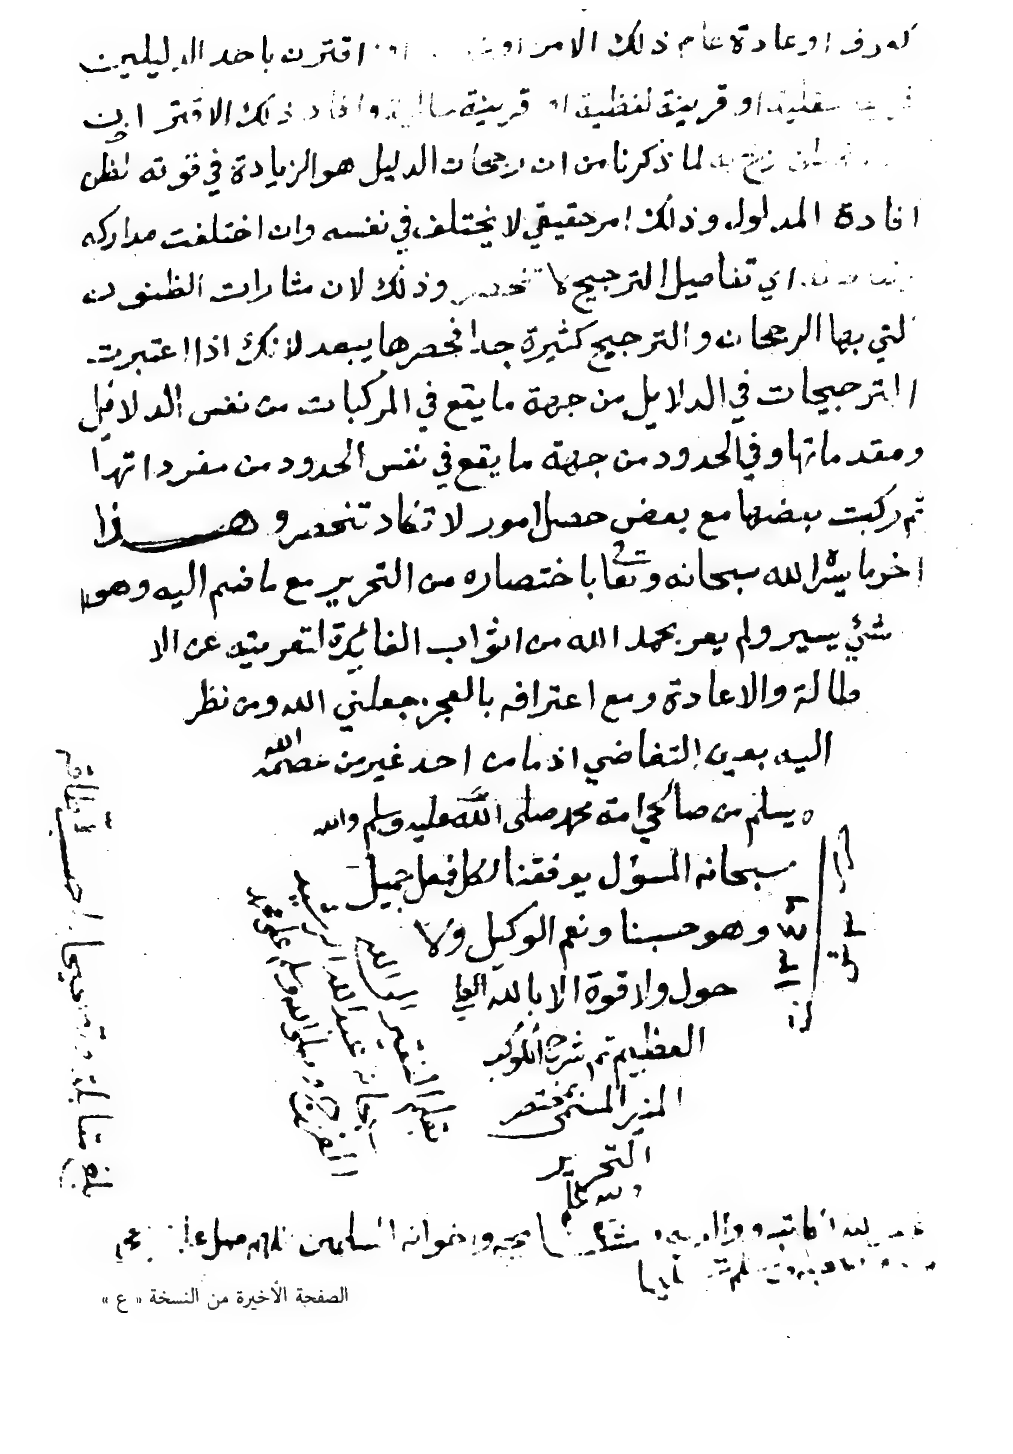 او عادة عام ذلك الامر اقترن باحد الدليلين
او قرينة لفظية او قرينة حالية وافاد ذلك الاقتران
رجح به لما ذكرنا من ان رجحان الدليل هو الزيادة في قوته لظن
افادة المدلول وذلك امر حقيقي لا يختلف في نفسه وان اختلفت مداركه
اي تفاصيل الترجيح لا تنحصر وذلك لان مثارات الظنون
التي بها الرجحان والترجيح كثيرة جدا فحصرها يبعد لانك اذا اعتبرت
الترجيحات في الدلايل من جهة ما يقع في المركبات من نفس الدلائل
ومقدماتها وفي الحدود من جهة ما يقع في نفس الحدود من مفرداتها
ثم ركبت بعضها مع بعض حصل امور لا تكاد تنحصر وهذا
اخر ما يسره الله سبحانه وتعالى باختصاره من التحرير مع ما ضم اليه وهو
شيئ يسير ولم يعر بحمد الله من اثواب الفائدة لتعريته عن الا
طالة والاعادة ومع اعترافه بالعجز جعلني الله ومن نظر
اليه بعين التغاضي اذ ما من احد غير من عصمه الله
يسلم من صالحي امة محمد صلى الله عليه وسلم والله
سبحانه المسؤل يوفقنا لكل فعل جميل
وهو حسبنا ونعم الوكيل ولا
حول ولا قوة الا بالله العلي
العظيم تم شرح الكوكب
المنير المسمى بمختصر
التحرير
بقلم الفقير الى الله
سبحانه عبد الله الرشيد
الفرج وصلى الله وسلم على محمد
١٣٤٦
بلغ مقابلة وتصحيحا حسب الطاقة
لكاتبه ووالديه واخوانه المسلمين
الصفحة الأخيرة من النسخة « ع »